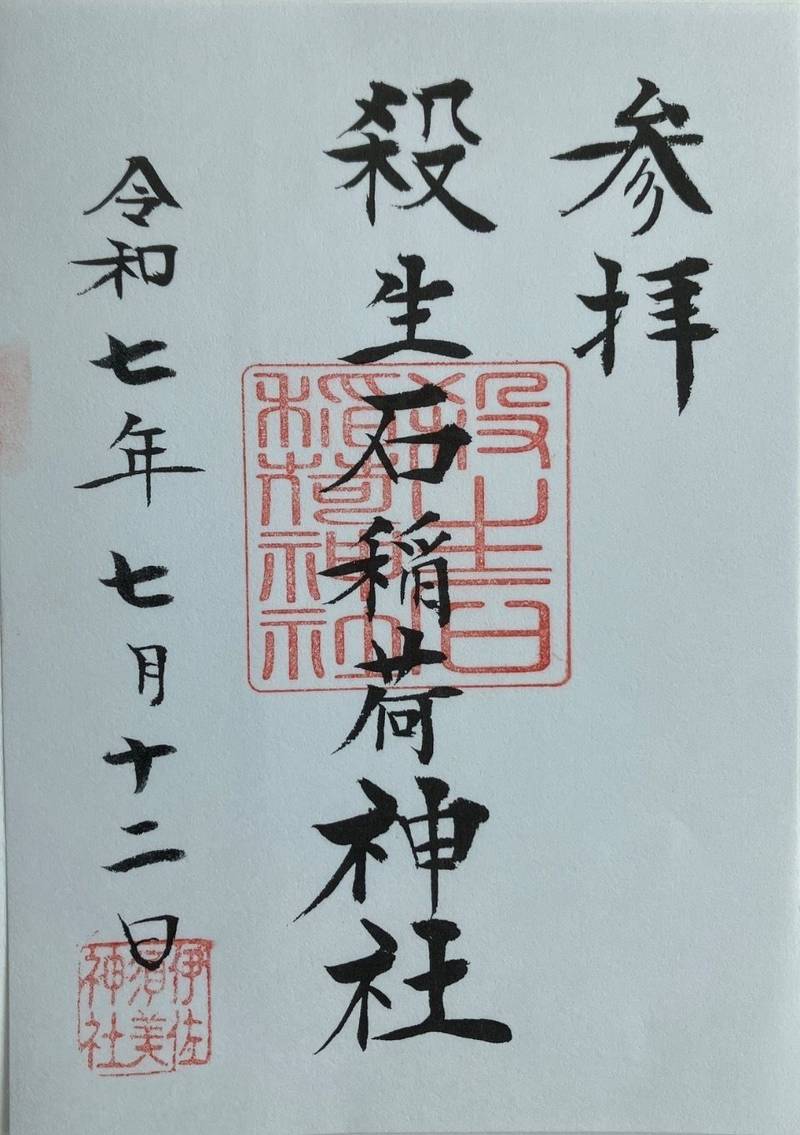 参拝
殺生石稲荷神社
殺生石稲荷神社
令和七年七月十二日
伊佐須美神社